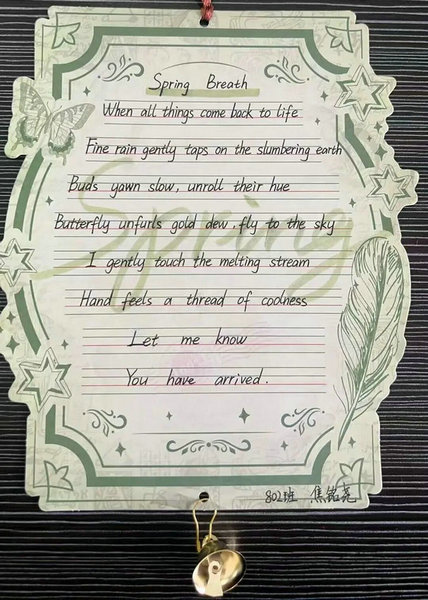 Spring Breath
When all things come back to life
Fine rain gently taps on the slumbering earth
Buds yawn slow, unroll their hue
Butterfly unfurls gold dew, fly to the sky
I gently touch the melting stream
Hand feels a thread of coolness
Let me know
You have arrived.
Spring
802班 焦铭尧